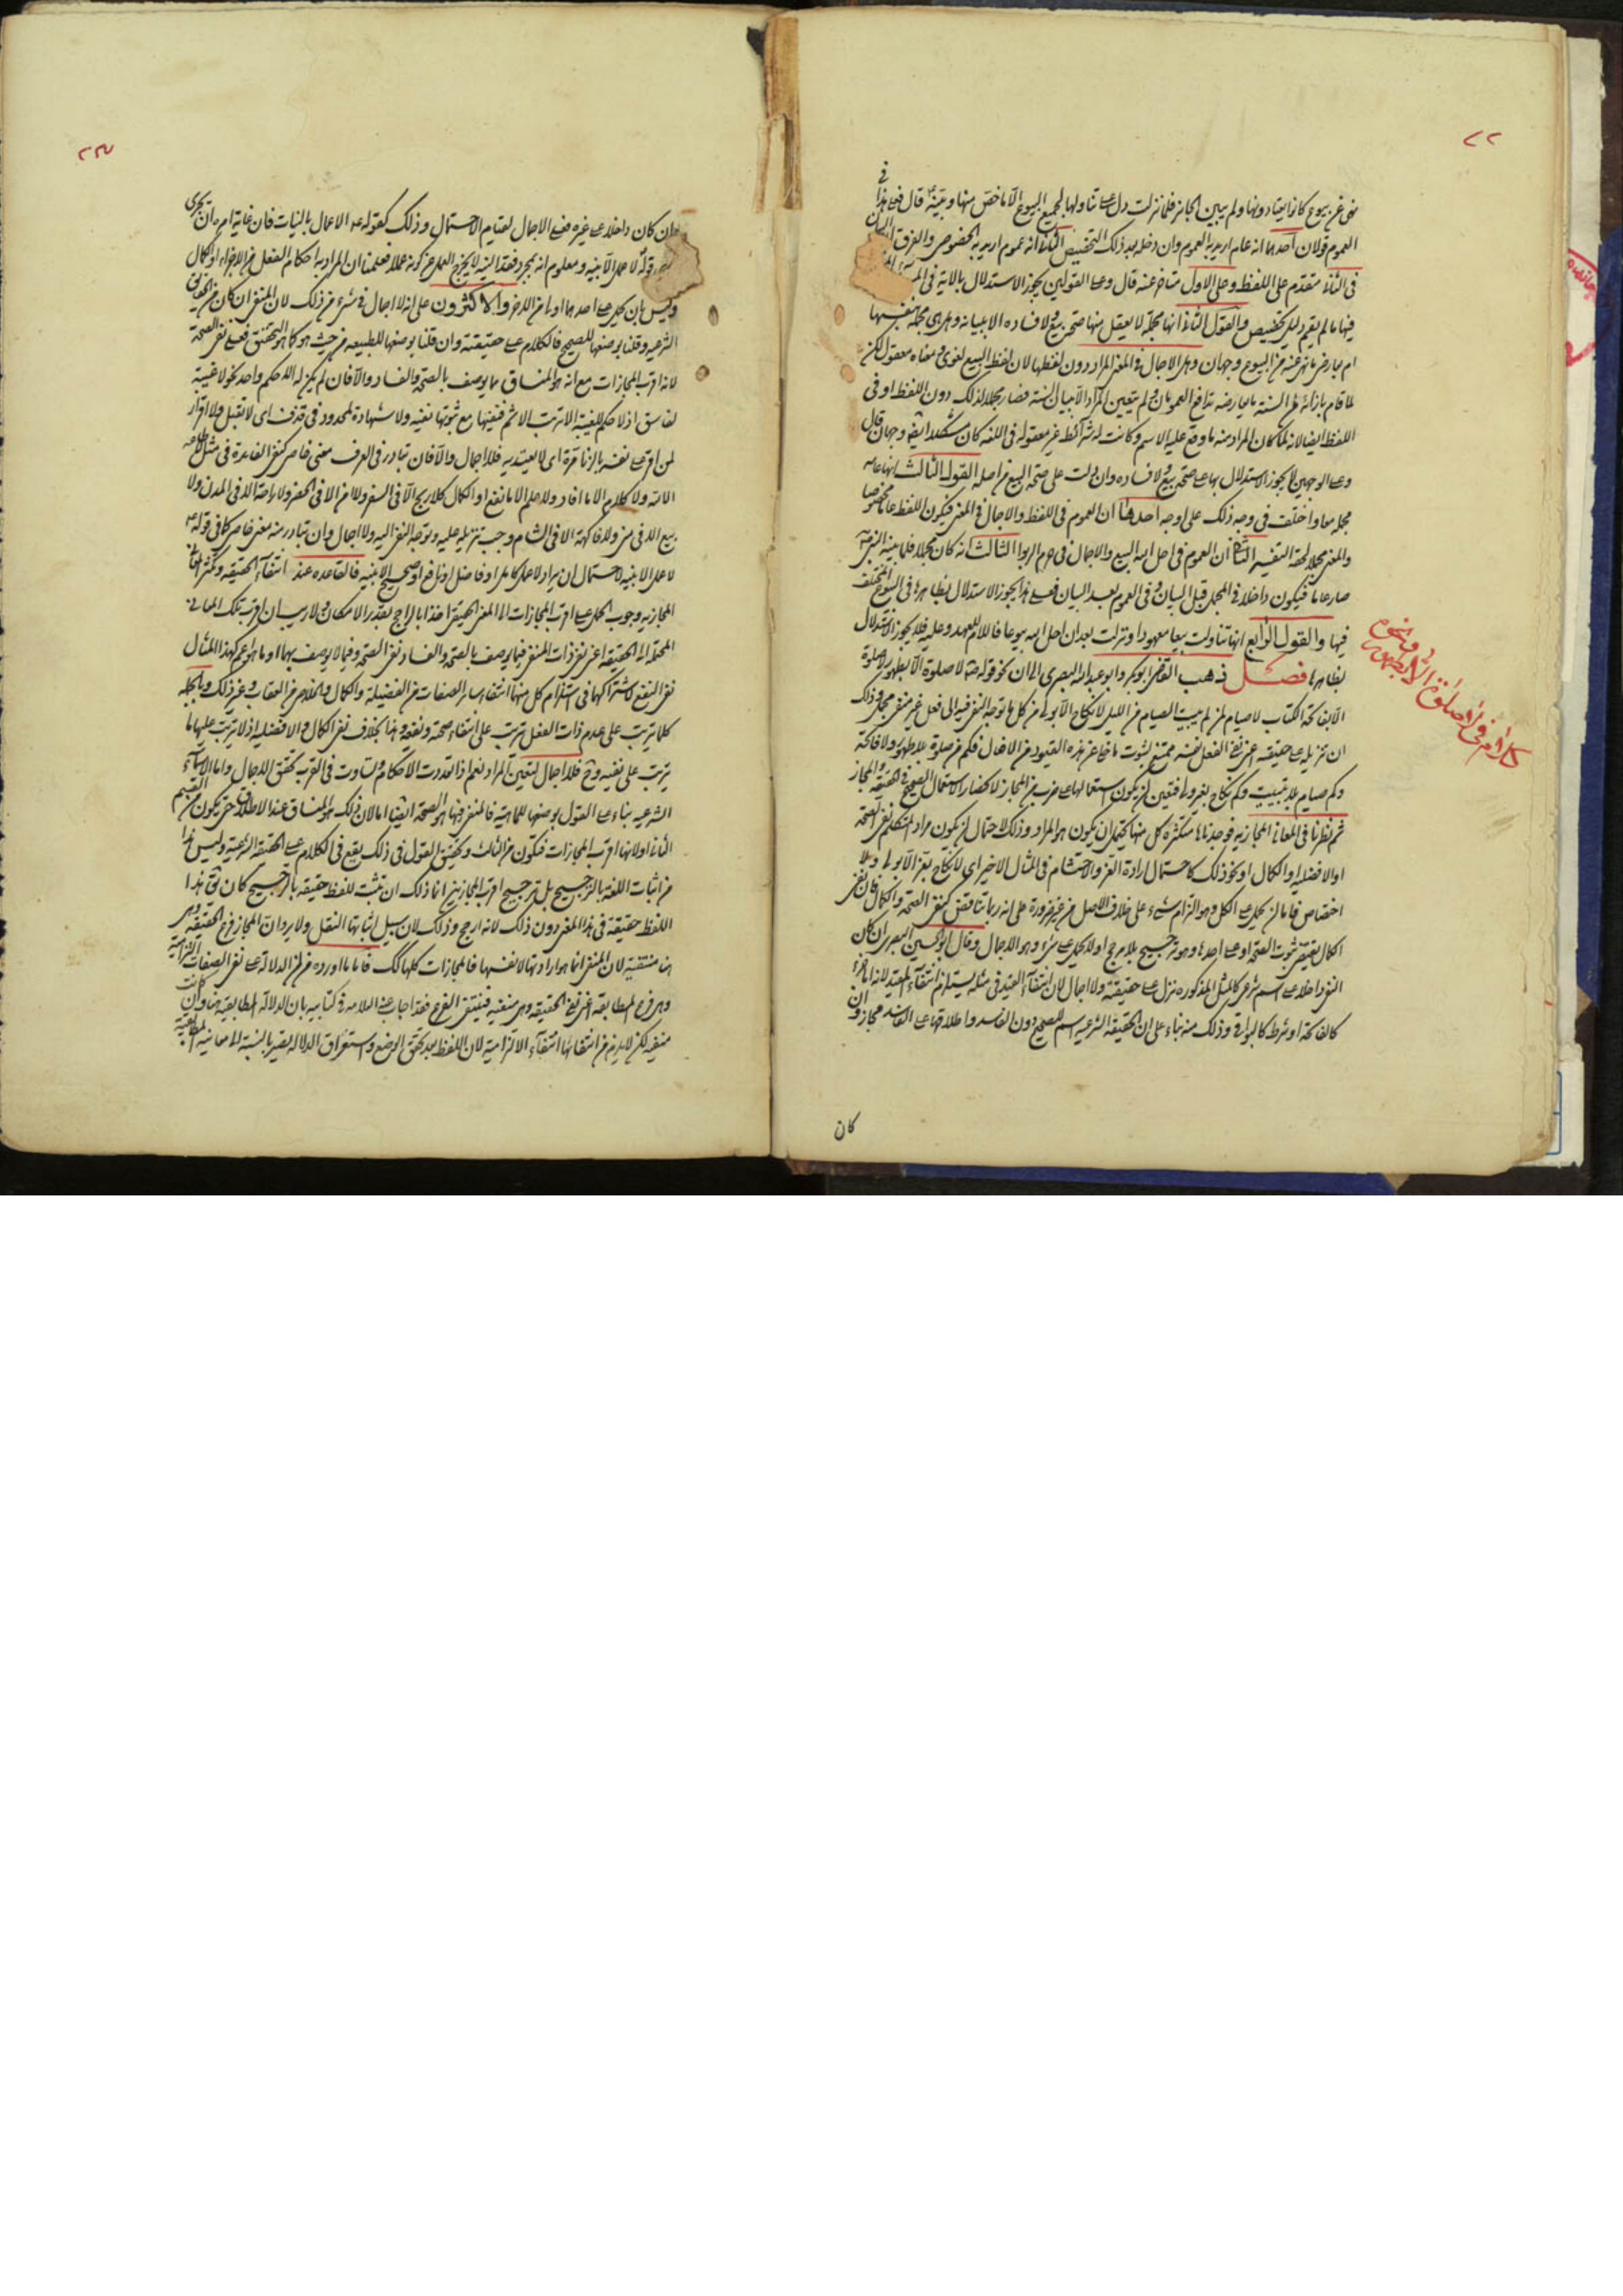 ٧٢
نهى عن بيوع كانوا يعتادونها ولم يبين الجايز فلما نزلت دل على تناولها لجميع البيوع الا ما خص منها وبينه قال فعلى هذا في
العموم قولان احدهما انه عام اريد به العموم وان دخله بعد ذلك التخصيص الثاني انه عموم اريد به الخصوص والفرق ان البيان
في الثاني متقدم على اللفظ وعلى الاول متاخر عنه قال وعلى القولين يجوز الاستدلال بالاية في
فيها ما لم يقم دليل تخصيص والقول الثاني انها مجملة لا يعقل منها صحة بيع ولا فساده الا ببيانه وهل هي مجملة بنفسها
ام بعارض ما نهى عنه من البيوع وجهان وهل الاجمال في المعنى المراد دون لفظها لان لفظ البيع لغوي ومعناه معقول لكن
لما قام بازائه من السنة ما يعارضه تدافع العمومان ولم يتعين المراد الا ببيان السنة فصار مجملا لذلك دون اللفظ او في
اللفظ ايضا لانه لما كان المراد منه ما وقع عليه الاسم وكانت له شرائط غير معقولة في اللغة كان مشكلا ايضا وجهان قال
وعلى الوجهين لا يجوز الاستدلال بها على صحة بيع ولا فساده وان دلت على صحة البيع من اصله القول الثالث انها عامة
مجملة معا واختلف في وجه ذلك على اوجه احدها ان العموم في اللفظ والاجمال في المعنى فيكون اللفظ عاما مخصوصا
والمعنى مجملا لحقه التفسير الثاني ان العموم في احل الله البيع والاجمال في حرم الربوا الثالث انه كان مجملا فلما بينه النبي ص
صار عاما فيكون داخلا في المجمل قبل البيان وفي العموم بعد البيان فعلى هذا يجوز الاستدلال بظاهرها في البيوع المختلف
فيها والقول الرابع انها تناولت بيعا معهودا ونزلت بعد ان احل الله بيوعا فاللام للعهد وعليه فلا يجوز الاستدلال
بظاهرها فصل ذهب القاضي ابو بكر وابو عبد الله البصري الى ان نحو قوله ص لا صلوة الا بطهور لا صلوة
الا بفاتحة الكتاب لا صيام لمن لم يبيت الصيام من الليل لا نكاح الا بولي من كل ما توجه النفي فيه الى فعل غير منفي مجمل وذلك
ان تنزيله على حقيقته اعني نفي الفعل نفسه ممتنع لثبوت ما خلا عن هذه القيود من الافعال فكم من صلوة بلا طهور ولا فاتحة
وكم صيام بلا تبييت وكم نكاح بغير ولي فتعين ان يكون استعمالها على ضرب من المجاز لانحصار الاستعمال الصحيح في الحقيقة والمجاز
ثم نظرنا في المعاني المجازية فوجدناها متكثرة كل منها يحتمل ان يكون هو المراد وذلك لاحتمال ان يكون مراد المتكلم نفي الصحة
او الافضلية او الكمال او نحو ذلك كاحتمال ارادة العز والاحتشام في المثال الاخير اي لا نكاح بعز الا بولي ولا
اختصاص فاما ان يحمل على الكل وهو التزام شيء على خلاف الاصل من غير ضرورة على انه ربما تناقض كنفي الصحة والكمال فان نفي
الكمال يقتضي ثبوت الصحة او على احدها وهو ترجيح بلا مرجح او لا يحمل على شيء وهو الاجمال وقال ابو الحسين البصري ان كان
النفي داخلا على اسم شرعي كالمثل المذكورة نزل على حقيقته ولا اجمال لان انتفاء القيد في مثله يستلزم انتفاء المقيد لانه اما جزء
كالفاتحة او شرط كالبواقي وذلك منه بناء على ان الحقيقة الشرعية اسم للصحيح دون الفاسد واطلاقها على الفاسد مجاز وان
كان
وان كان داخلا على غيره فعلى الاجمال لقيام الاحتمال وذلك كقوله ص الاعمال بالنيات فان غايته ام ان تجري
قوله لا عمل الا بنية ومعلوم انه بمجرد فقد النية لا يخرج العمل عن كونه عملا فعلمنا ان المراد به احكام الفعل من الاجزاء او الكمال
وليس بان يحمل على احدهما اولى من الاخر والاكثرون على انه لا اجمال في شيء من ذلك لان المنفي ان كان من الحقايق
الشرعية وقلنا بوضعها للصحيح فالكلام على حقيقته وان قلنا بوضعها للطبيعة من حيث هي كما هو التحقيق فعلى نفي الصحة
لانه اقرب المجازات مع انه هو المنساق مما يوصف بالصحة والفساد والا فان لم يكن له الا حكم واحد نحو لا غيبة
لفاسق اذ لا حكم للغيبة الا ترتب الاثم فنفيها مع ثبوتها نفيه ولا شهادة لمحدود في قذف اي لا تقبل ولا اقرار
لمن اقر على نفسه بالزنا مرة اي لا يعتد به فلا اجمال والا فان تبادر في العرف معنى خاص كنفي الفايدة في مثل لا علم
ولا كلام الا ما افاد ولا علم الا ما نفع او الكمال كلا ربح الا في السفر ولا من الا في الحضر ولا راحة الا في المدن ولا
بيع الا في منى ولا فاكهة الا في الشام وجب تنزيله عليه وتوجه النفي اليه ولا اجمال وان تبادر منه معنى خاص كما في قوله ص
لا عمل الا بنية لاحتمال ان يراد لا عمل كامل او فاضل او نافع او صحيح الا بنية فالقاعدة عند انتفاء الحقيقة وتكثر المعاني
المجازية وجوب الحمل على اقرب المجازات الى المعنى الحقيقي اخذا بالراجح بقدر الامكان ولا ريب ان اقرب تلك المعاني
المحتملة الى الحقيقة اعني نفي ذات المنفي فيما يوصف بالصحة والفساد نفي الصحة وفيما لا يوصف بهما او ما هو اعم كهذا المثال
نفي النفع لاشتراكهما في استلزام كل منهما انتفاء ساير الصفات من الفضيلة والكمال والخلاص من العقاب وغير ذلك وبالجملة
كلما يترتب على عدم ذات الفعل يترتب على انتفاء صحته ونفعه وهذا بخلاف نفي الكمال والافضلية اذ لا يترتب عليهما ما
يترتب على نفيه وح فلا اجمال لتعين المراد نعم اذا تعددت الاحكام وتساوت في القرب تحقق الاجمال واما الاسماء
الشرعية بناء على القول بوضعها للماهية فالمنفي فيها هو الصحة ايضا اما لان ذلك هو المنساق عند الاطلاق حتى يكون من القسم
الثاني او لانها اقرب المجازات فيكون من الثالث وتحقيق القول في ذلك يقع في الكلام على الحقيقة الشرعية وليس هذا
من اثبات اللغة بالترجيح بل ترجيح اقرب المجازين انما ذلك ان تثبت للفظ حقيقة بالترجيح كان يق هذا
اللفظ حقيقة في هذا المعنى دون ذلك لانه ارجح وذلك لان سبيل اثباتها النقل ولا يرد ان المجاز فرع الحقيقة وهي
هنا منتفية لان المنفي انما هو ارادتها لا نفسها فالمجازات كلها كك فاما ما اورده من ان الدلالة على نفي الصفات التزامية
وهي فرع المطابقة اعني نفي الحقيقة وهي منفية فينتفي الفرع فقد اجاب عنه العلامة في كتابيه بان الدلالة المطابقية هنا وان كانت
منفية لكن لا يلزم من انتفائها انتفاء الالتزامية لان اللفظ بعد تحقق الوضع واستغراق الدلالة يصير بالنسبة الى معانيه المطابقية